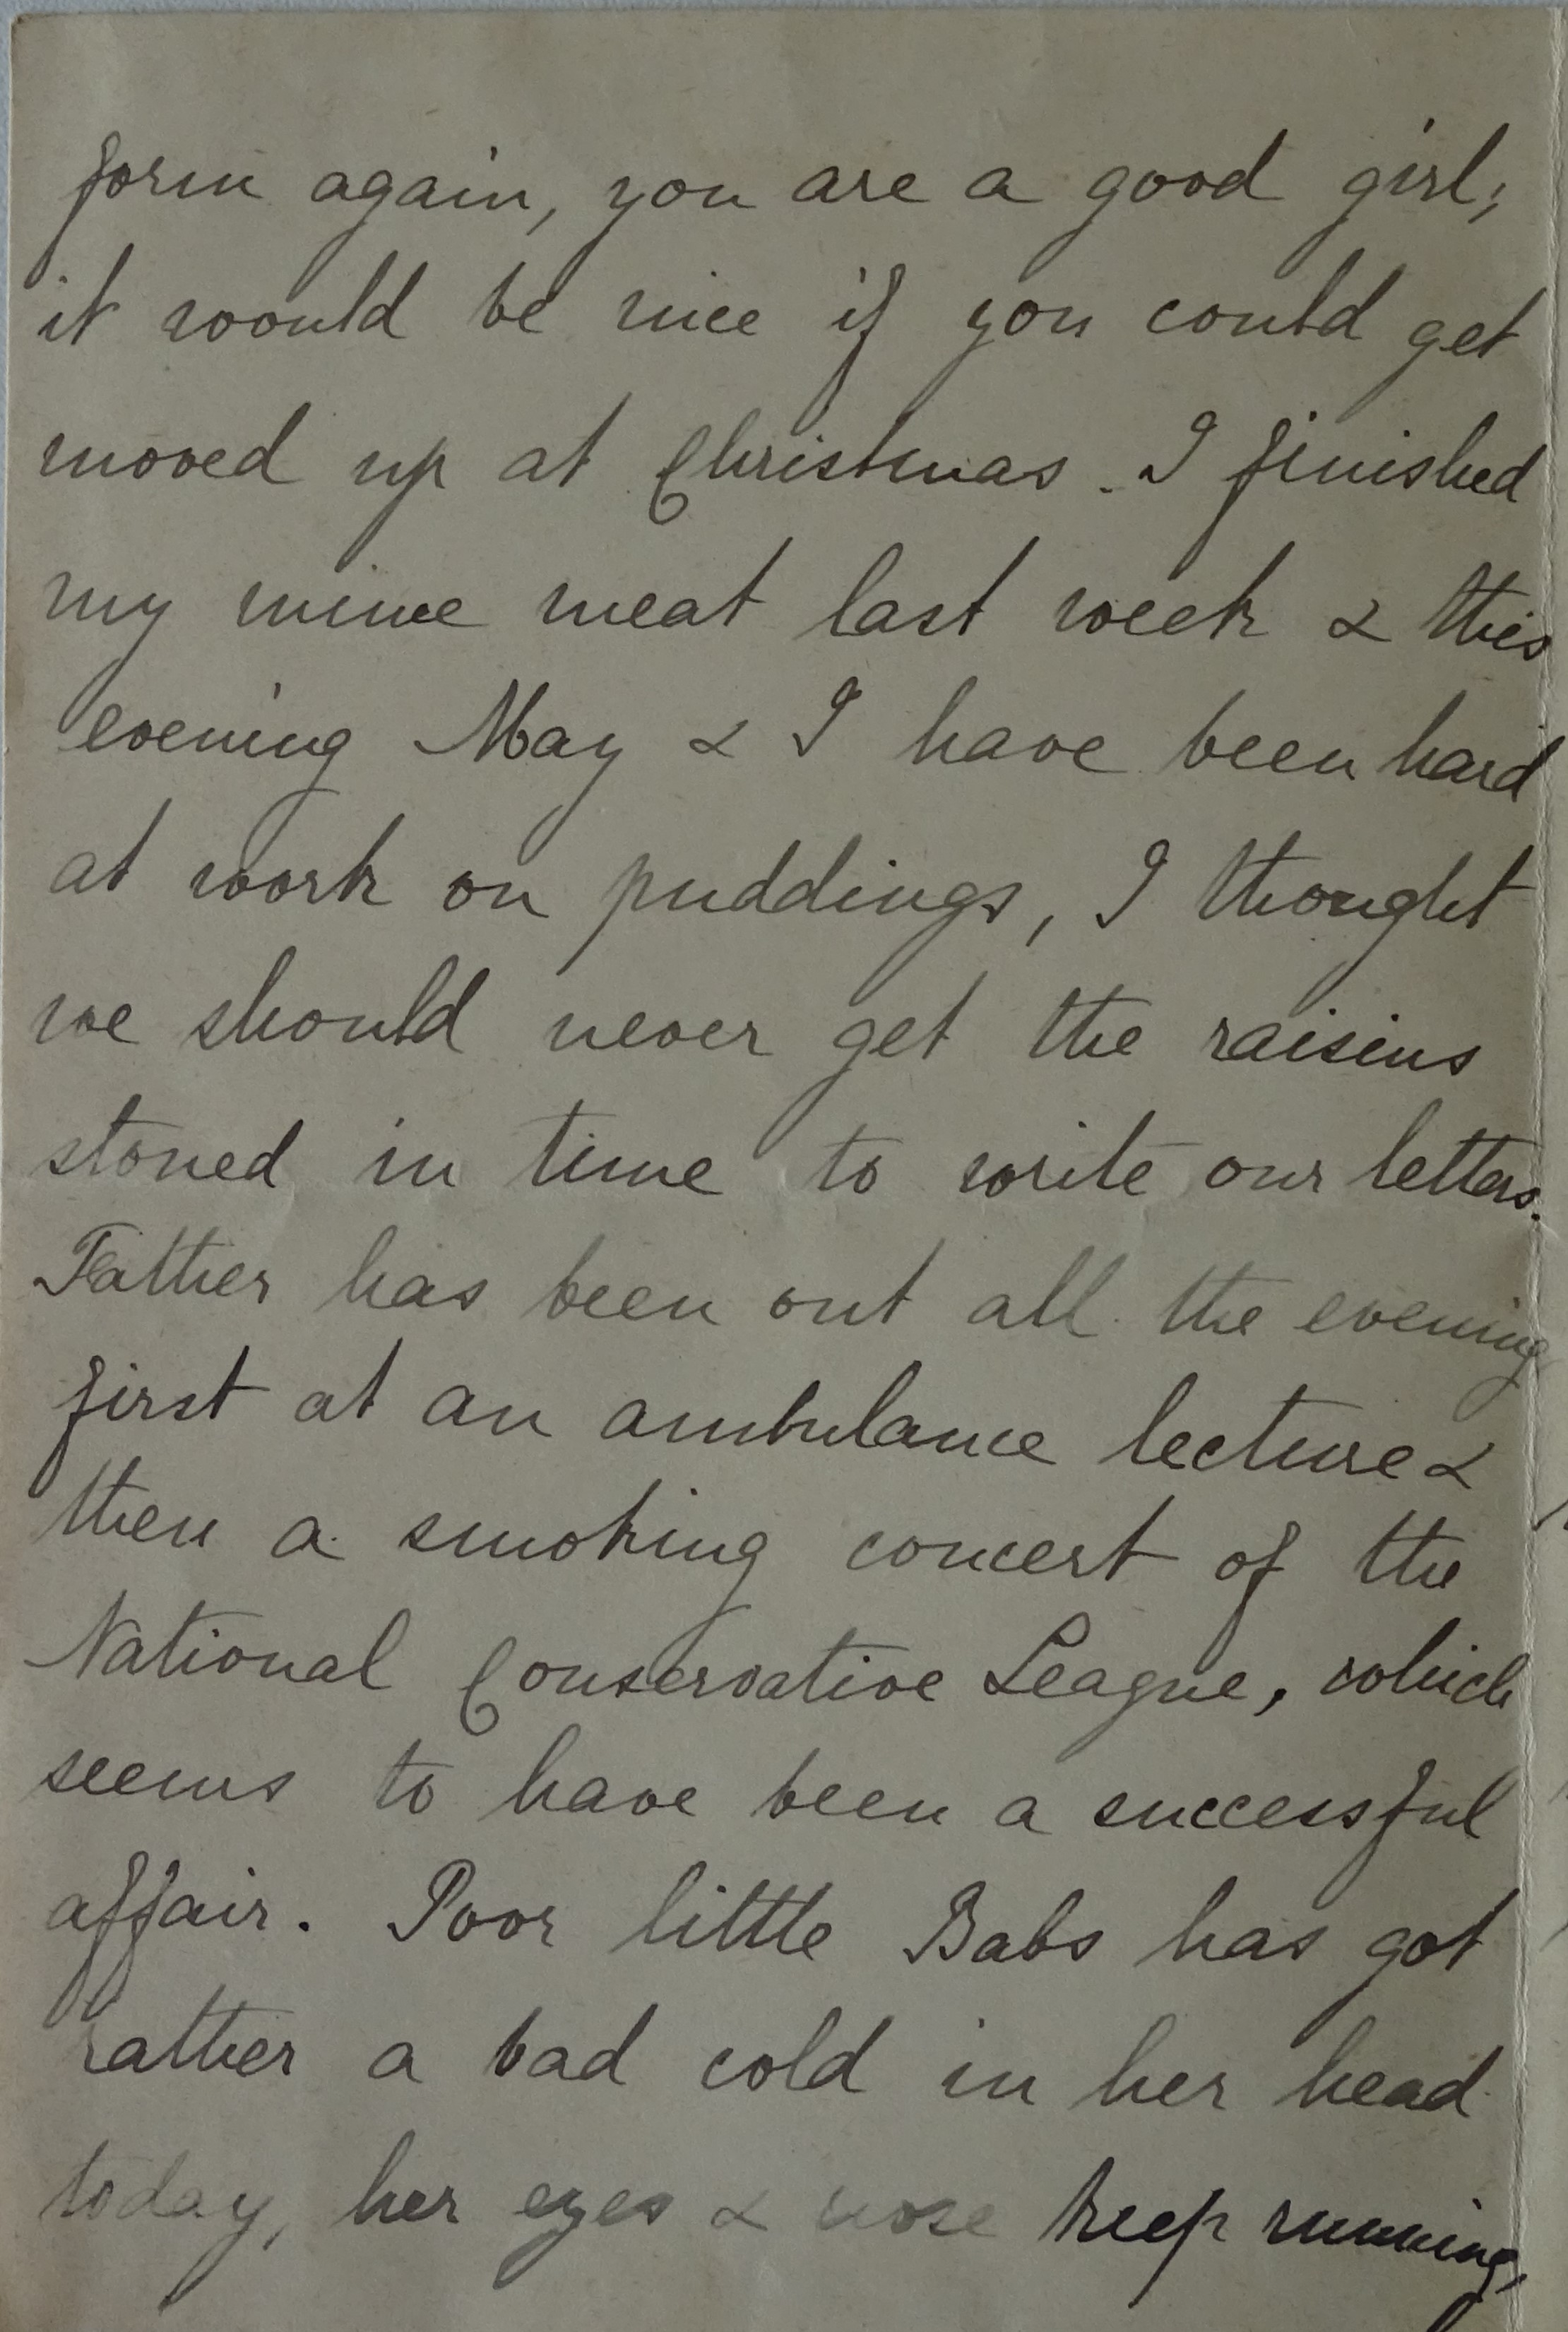 form again, you are a good girl;
it would be nice if you could get
moved up at Christmas. I finished
my mince meat last week & this
evening May & I have been hard
at work on puddings, I thought
we should never get the raisins
stoned in time to write our letters.
Father has been out all the evening
first at an ambulance lecture &
then a smoking concert of the
National Conservative League, which
seems to have been a successful
affair. Poor little Babs has got
rather a bad cold in her head
today, her eyes & nose keep running,